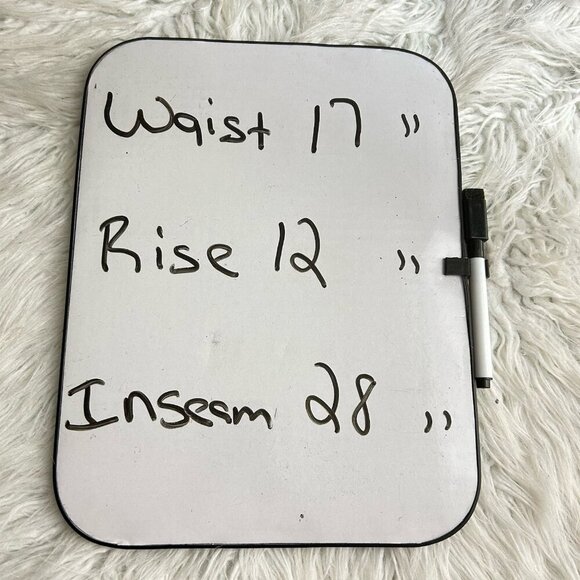 Waist 17 "
Rise 12 "
Inseam 28 "